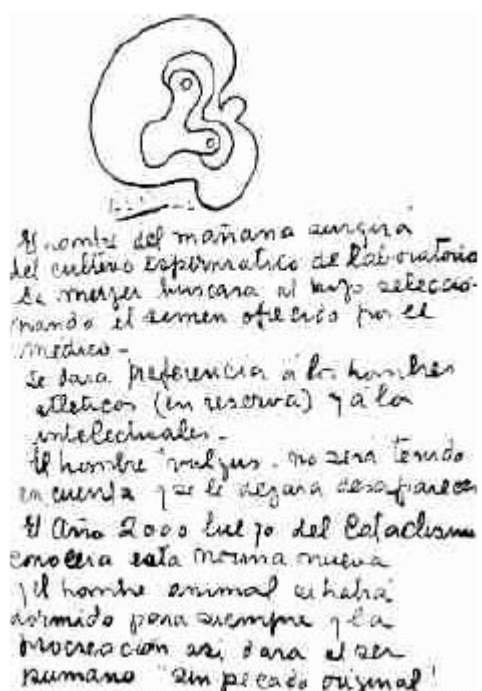 El hombre del mañana surgirá
del cultivo espermatico de laboratorio
La mujer buscara al hijo seleccio-
nando el semen ofrecido por el
medico -
Se dara preferencia a los hombres
atleticos (en reserva) y a los
intelectuales.-
El hombre "vulgus" no será tenido
en cuenta y se le dejara desaparecer
El Año 2000 luego del Cataclismo
conocera esta norma nueva
y el hombre animal se habrá
dormido para siempre y la
procreación asi, dara el ser
humano "sin pecado original"